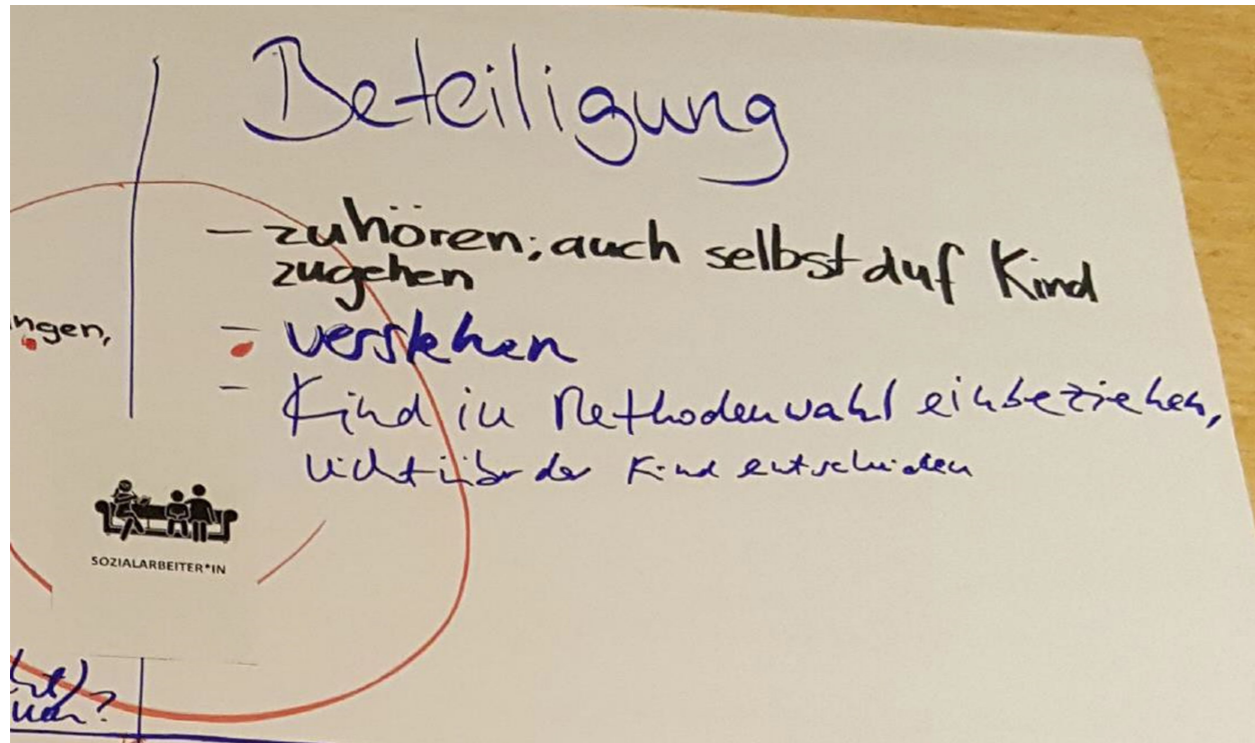 Beteiligung
- zuhören; auch selbst auf Kind
zugehen
ngen,
- verstehen
- Kind in Methodenwahl einbeziehen,
nicht über das Kind entscheiden
SOZIALARBEITER*IN